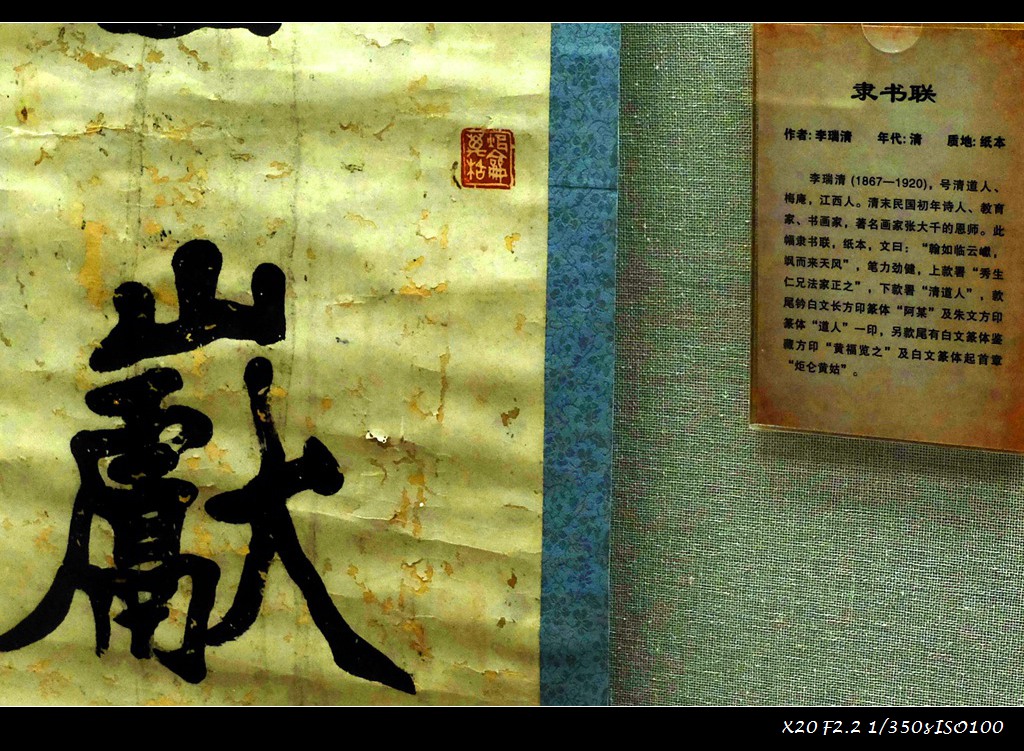 巘
隶书联
作者: 李瑞清 年代: 清 质地: 纸本
李瑞清 (1867—1920)，号清道人、
梅庵，江西人。清末民国初年诗人、教育
家、书画家，著名画家张大千的恩师。此
幅隶书联，纸本，文曰：“翰如临云巘，
飒而来天风”，笔力劲健，上款署“秀生
仁兄法家正之”，下款署“清道人”，款
尾钤白文长方印篆体“阿某”及朱文方印
篆体“道人”一印，另款尾有白文篆体鉴
藏方印“黄福览之”及白文篆体起首章
“炬仑黄姑”。
X20 F2.2 1/350sISO100